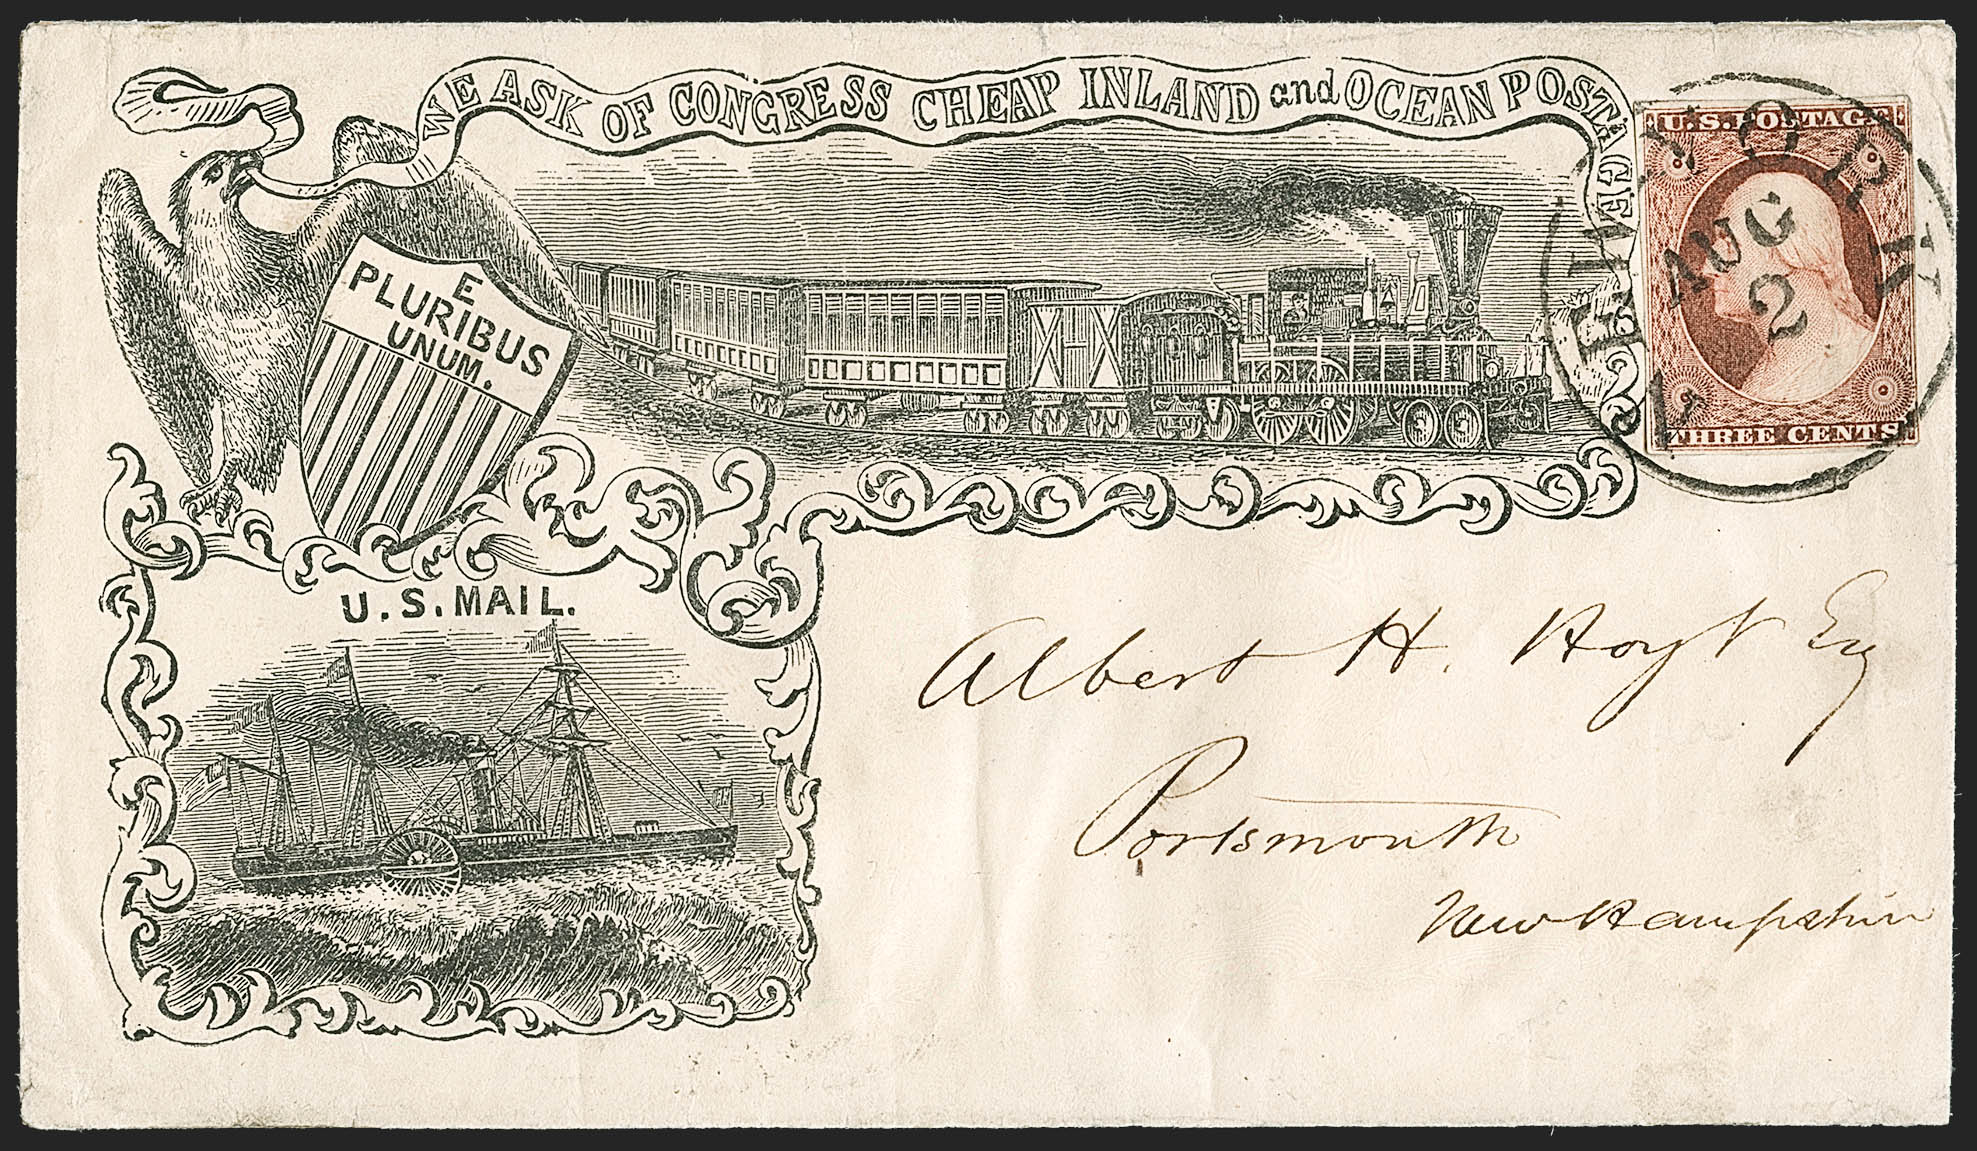 WE ASK OF CONGRESS CHEAP INLAND and OCEAN POSTAGE
E
PLURIBUS
UNUM.
U.S. MAIL.
U.S. POSTAGE
THREE CENTS
NEW YORK
AUG
2
Albert H. Hoyt Esq
Portsmouth
New Hampshire